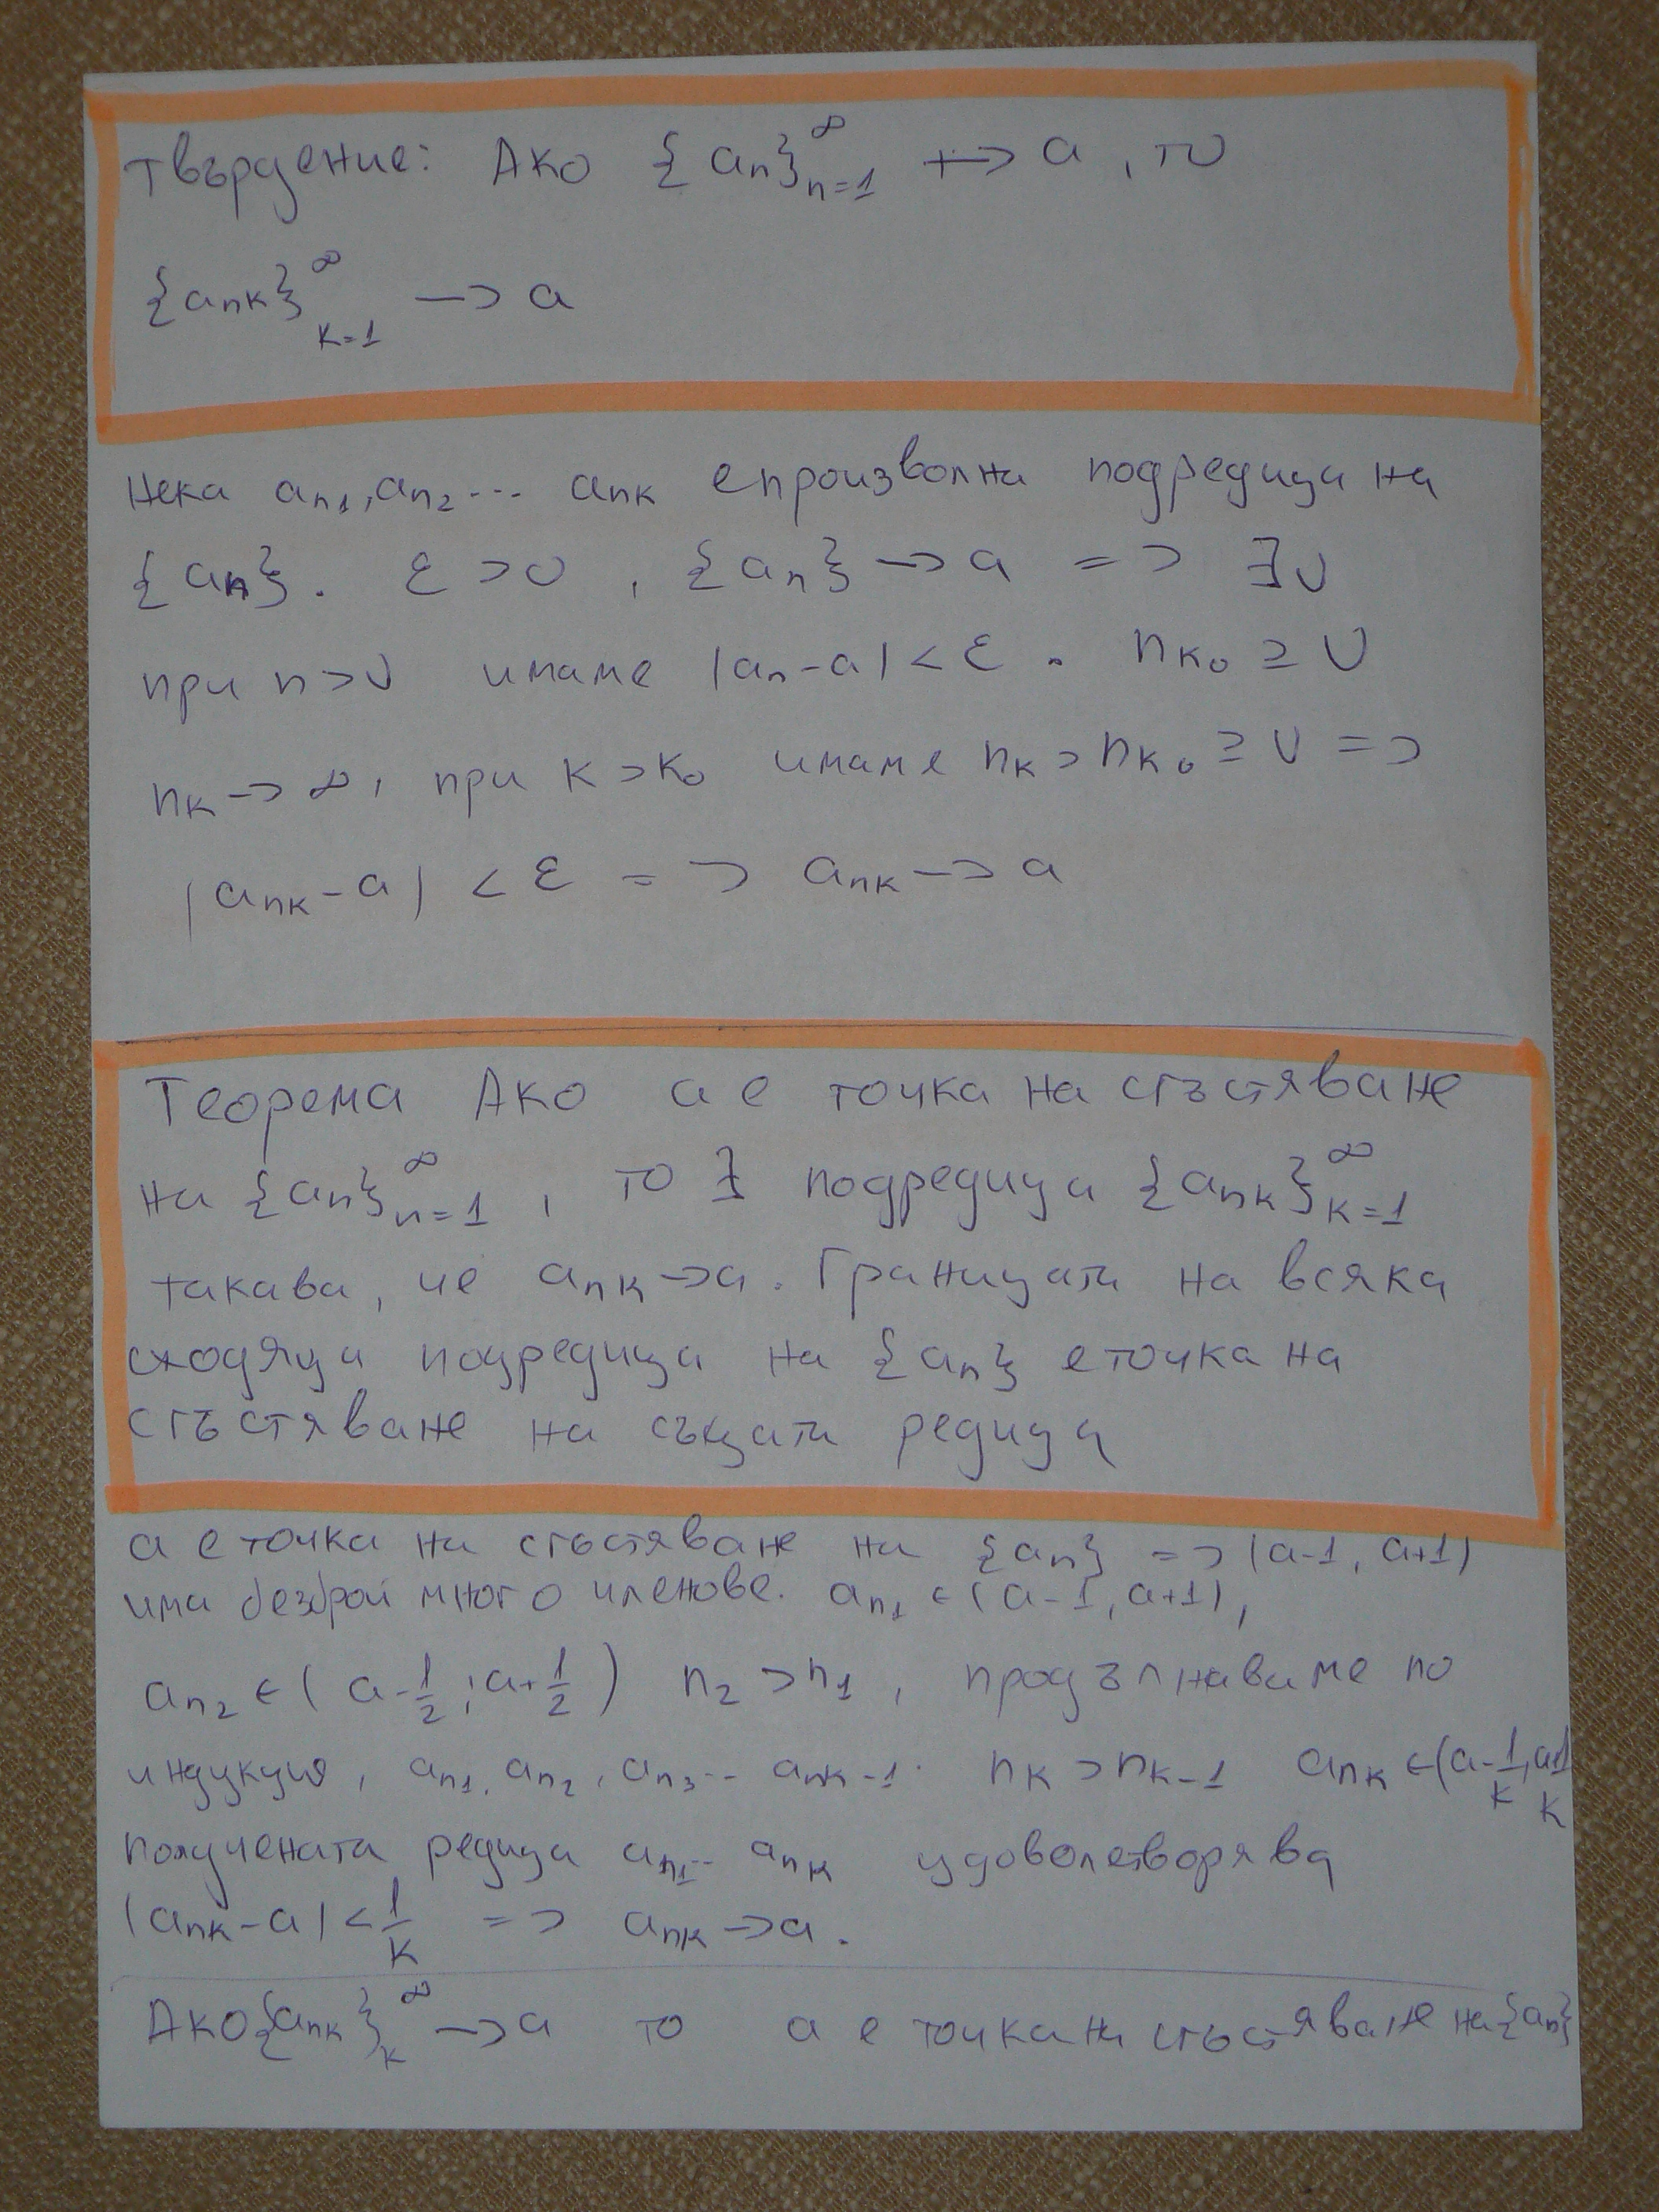 Твърдение: Ако {aₙ}ₙ₌₁^∞ +-> a, то
{aₙₖ}ₖ₌₁^∞ -> a
Нека aₙ₁, aₙ₂ ... aₙₖ е произволна подредица на
{aₙ}. ε > 0, {aₙ} -> a => ∃ν
при n > ν имаме |aₙ - a| < ε. nₖ₀ ≥ ν
nₖ -> ∞, при k > k₀ имаме nₖ > nₖ₀ ≥ ν =>
|aₙₖ - a| < ε => aₙₖ -> a
Теорема Ако a е точка на сгъстяване
на {aₙ}ₙ₌₁^∞, то ∃ подредица {aₙₖ}ₖ₌₁^∞
такава, че aₙₖ -> a. Границата на всяка
сходяща подредица на {aₙ} е точка на
сгъстяване на същата редица
a е точка на сгъстяване на {aₙ} => (a-1, a+1)
има безброй много членове. aₙ₁ ∈ (a-1, a+1),
aₙ₂ ∈ (a-1/2; a+1/2) n₂ > n₁, продължаваме по
индукция, aₙ₁, aₙ₂, aₙ₃... aₙₖ₋₁. nₖ > nₖ₋₁ aₙₖ ∈ (a-1/k, a+1/k
получената редица aₙ₁... aₙₖ удоволетворява
|aₙₖ - a| < 1/k => aₙₖ -> a.
Ако {aₙₖ}ₖ^∞ -> a то a е точка на сгъстяване на {aₙ}